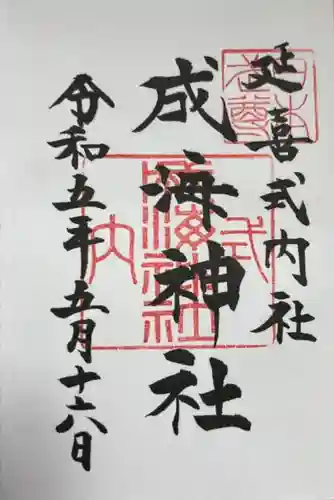 延喜式内社
成海神社
令和五年五月十六日
式
内
成海神社